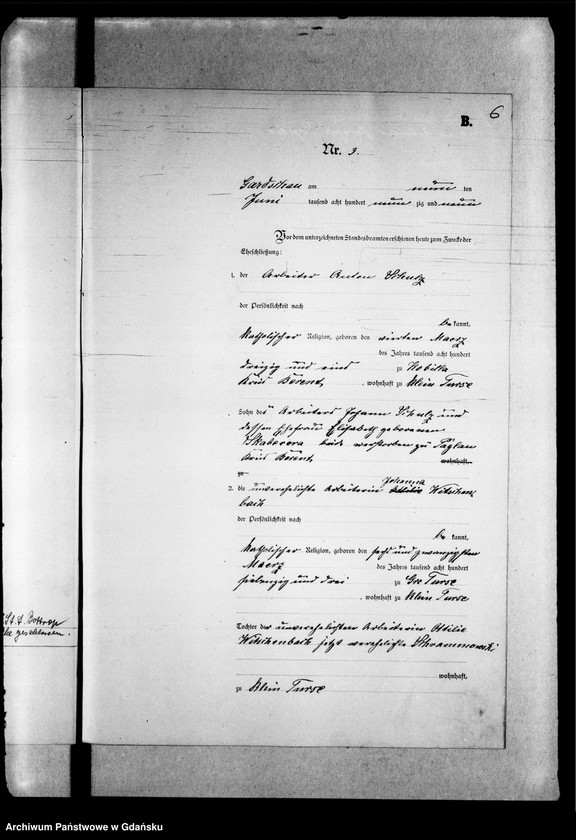 6
B.
Nr. 3.
Gardschau am neun ten
Juni tausend acht hundert neun zig und neun
Vor dem unterzeichneten Standesbeamten erschienen heute zum Zwecke der
Eheschließung:
1. der Arbeiter Anton Schulz
der Persönlichkeit nach
be kannt,
katholischer Religion, geboren den vierten Maerz
des Jahres tausend acht hundert
dreizig und eins zu
Kreis Berent, wohnhaft zu Klein Turse
Sohn des Arbeiters Johann Schulz und
dessen Ehefrau Elisabeth geborenen
beide verstorben zu
Kreis Berent, wohnhaft
zu
Johanna
2. die unverehelichte Arbeiterin Ottilie Witschen
bach
der Persönlichkeit nach
be kannt,
katholischer Religion, geboren den sechs und zwanzigsten
Maerz des Jahres tausend acht hundert
siebenzig und drei zu Gr. Turse
, wohnhaft zu Klein Turse
Tochter der unverehelichten Arbeiterin Ottilie
Witschenbach jetzt verehelichte Schrammowski
wohnhaft,
zu Klein Turse
geschlossen.
Archiwum Państwowe w Gdańsku